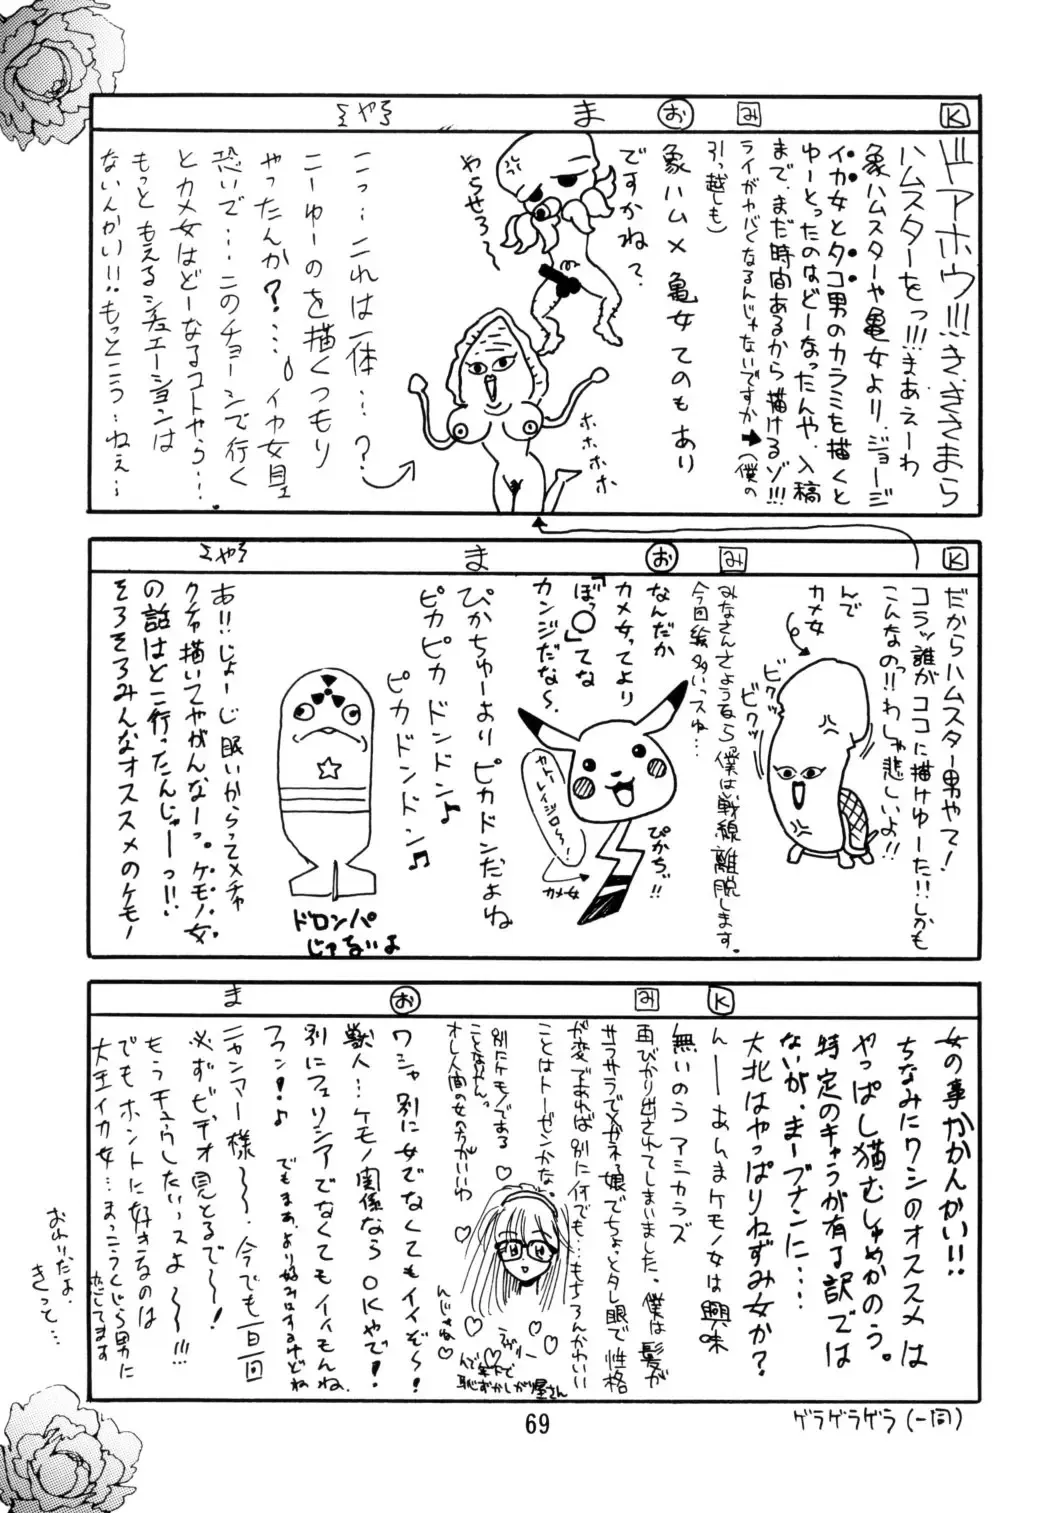 K
ドアホウ!!!ききさまら
ハムスターをっ!!!まあえーわ
象ハムスターや亀女より、ジョージ
イカ女とタコ男のカラミを描くと
ゆーとったのはどーなったんや、入稿
まで、まだ時間あるから描けるゾ!!!
み
ライがヤバくなるんじゃないですか➡(僕の
引っ越しも)
お
象ハム×亀女てのもあり
ですかね?
やらせろ〜
ホホホホ
ま
こっ…これは一体…?
こーゆーのを描くつもり
やったんか?…。イカ女も
恐いで…このチョーシで行く
とカメ女はどーなるコトやら…。
もっともえるシチュエーションは
ないんかい!!もっとこうっ…ねぇ…
K
だからハムスター男やて!
コラッ誰がココに描けゆーた!!しかも
こんなのっ!!わしゃ悲しいよ!!
んで
カメ女
ビクッ
ビクッ
み
みなさんさようなら僕は戦線離脱します。
今回絵多いっスね…
お
なんだか
カメ女ってより
「ぼっ○」てな
カンジだな〜
ぴかぢゅ!!
カメ女
ま
ぴかちゅーよりピカドンだよね
ピカピカドンドン♪
ピカドンドン♫
ドロンパ
じゃないよ
あ!!じょーじ眠いからってメチャ
クチャ描いてやがんなーっ。ケモノ女
の話はどこ行ったんじゃーっ!!
そろそろみんなオススメのケモノ
女の事かかんかい!!
ちなみにワシのオススメは
やっぱし猫むしゅめかのう。
特定のキャラが有る訳では
ないが、まーブナンに….
大北はやっぱりねずみ女か?
K
んーーあんまケモノ女は興味
無いのうアシカラズ
み
再びかり出されてしまいました。僕は髪が
サラサラでメガネっ娘でちょっとタレ眼で性格
が変であれば別に何でも…もちろんかわいい
ことはトーゼンかな。
別にケモノである
ことないやん。
オレ人間の女の方がいいわ
んじゃね
んで笑ガオで
恥ずかしがり屋さん
お
ワシャ別に女でなくてもイイぞ〜!
獣人…ケモノ関係ならOKやで!
別にフェリシアでなくてもイイもんね、
フラン!♪
でもまあ、より好みはするけどね
ま
ニャンマー様〜〜、今でも一日一回
必ずビデオ見とるで〜!
もうチュウしたいっスよ〜〜!!!
でもホントに好きなのは
大王イカ女…まっこうくじら男に
恋してます
おわりだよ、
きって…
ゲラゲラゲラ(一同)
69